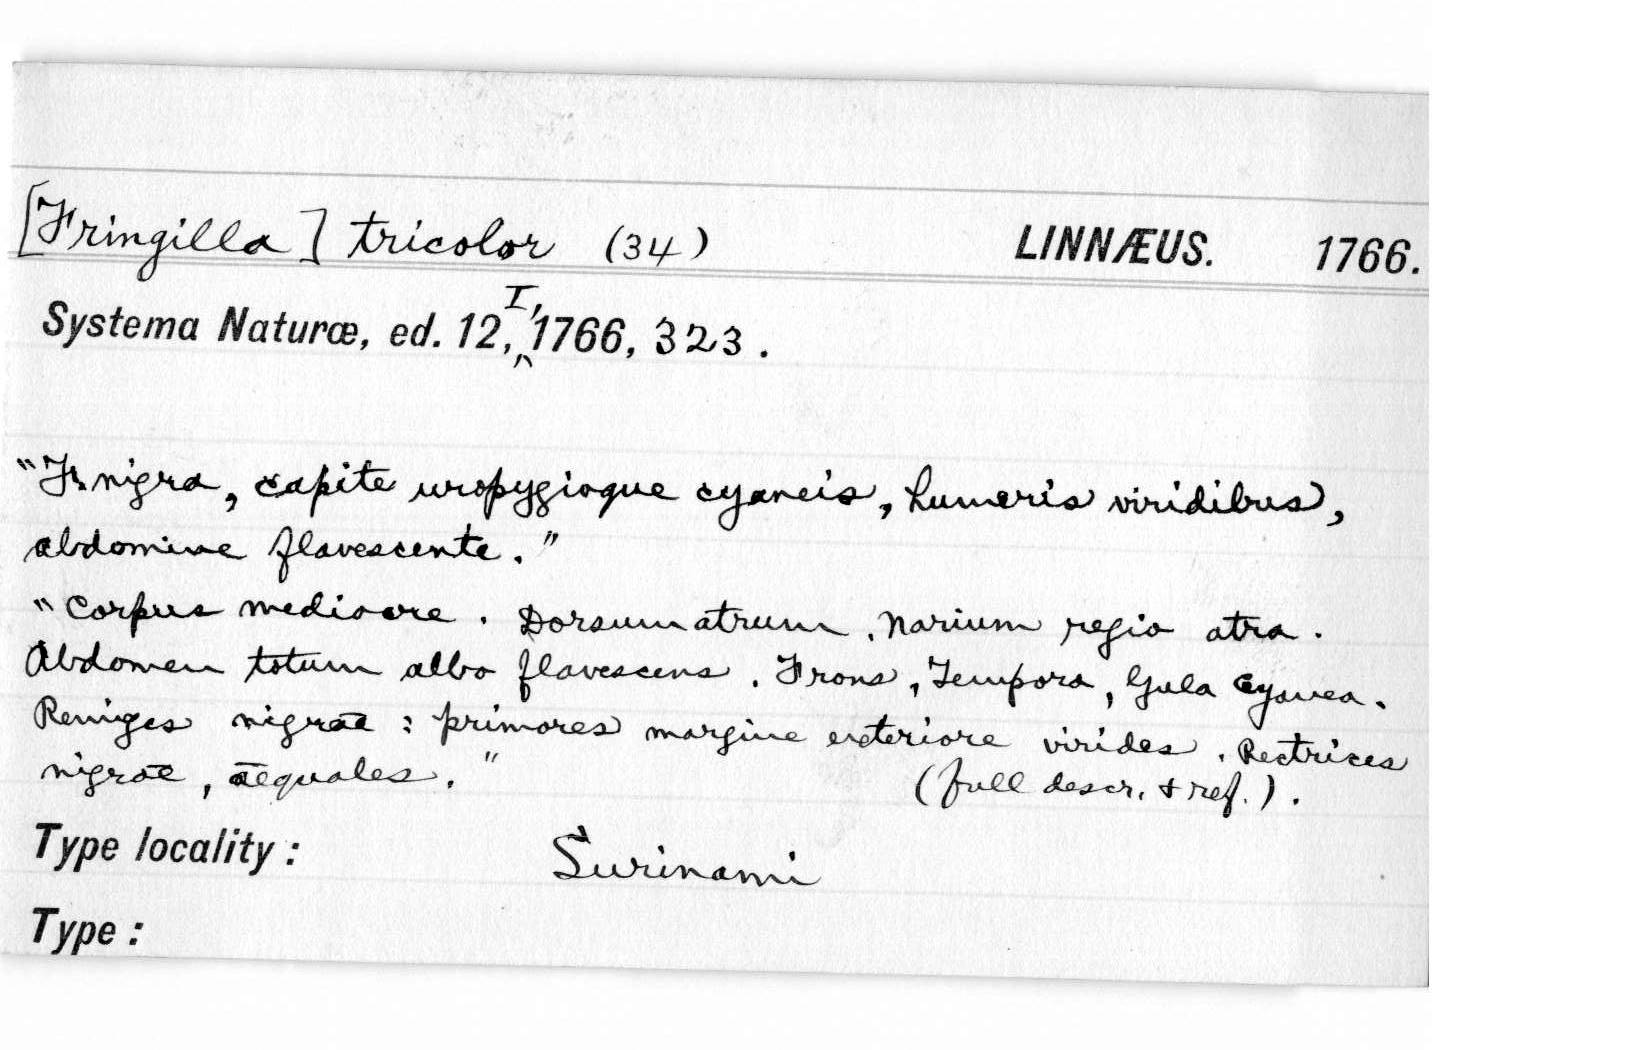 [Fringilla] tricolor (34) LINNÆUS. 1766.
Systema Naturæ, ed. 12, I, 1766, 323.
"Fr nigra, capite uropygioque cyaneis, humeris viridibus,
abdomine flavescente."
"Corpus mediocre. Dorsum atrum. Narium regio atra.
Abdomen totum albo flavescens. Frons, Tempora, Gula Cyanea.
Remiges nigrae: primores margine exteriore virides. Rectrices
nigrae, aequales."
(full descr. & ref.).
Type locality: Surinami
Type: